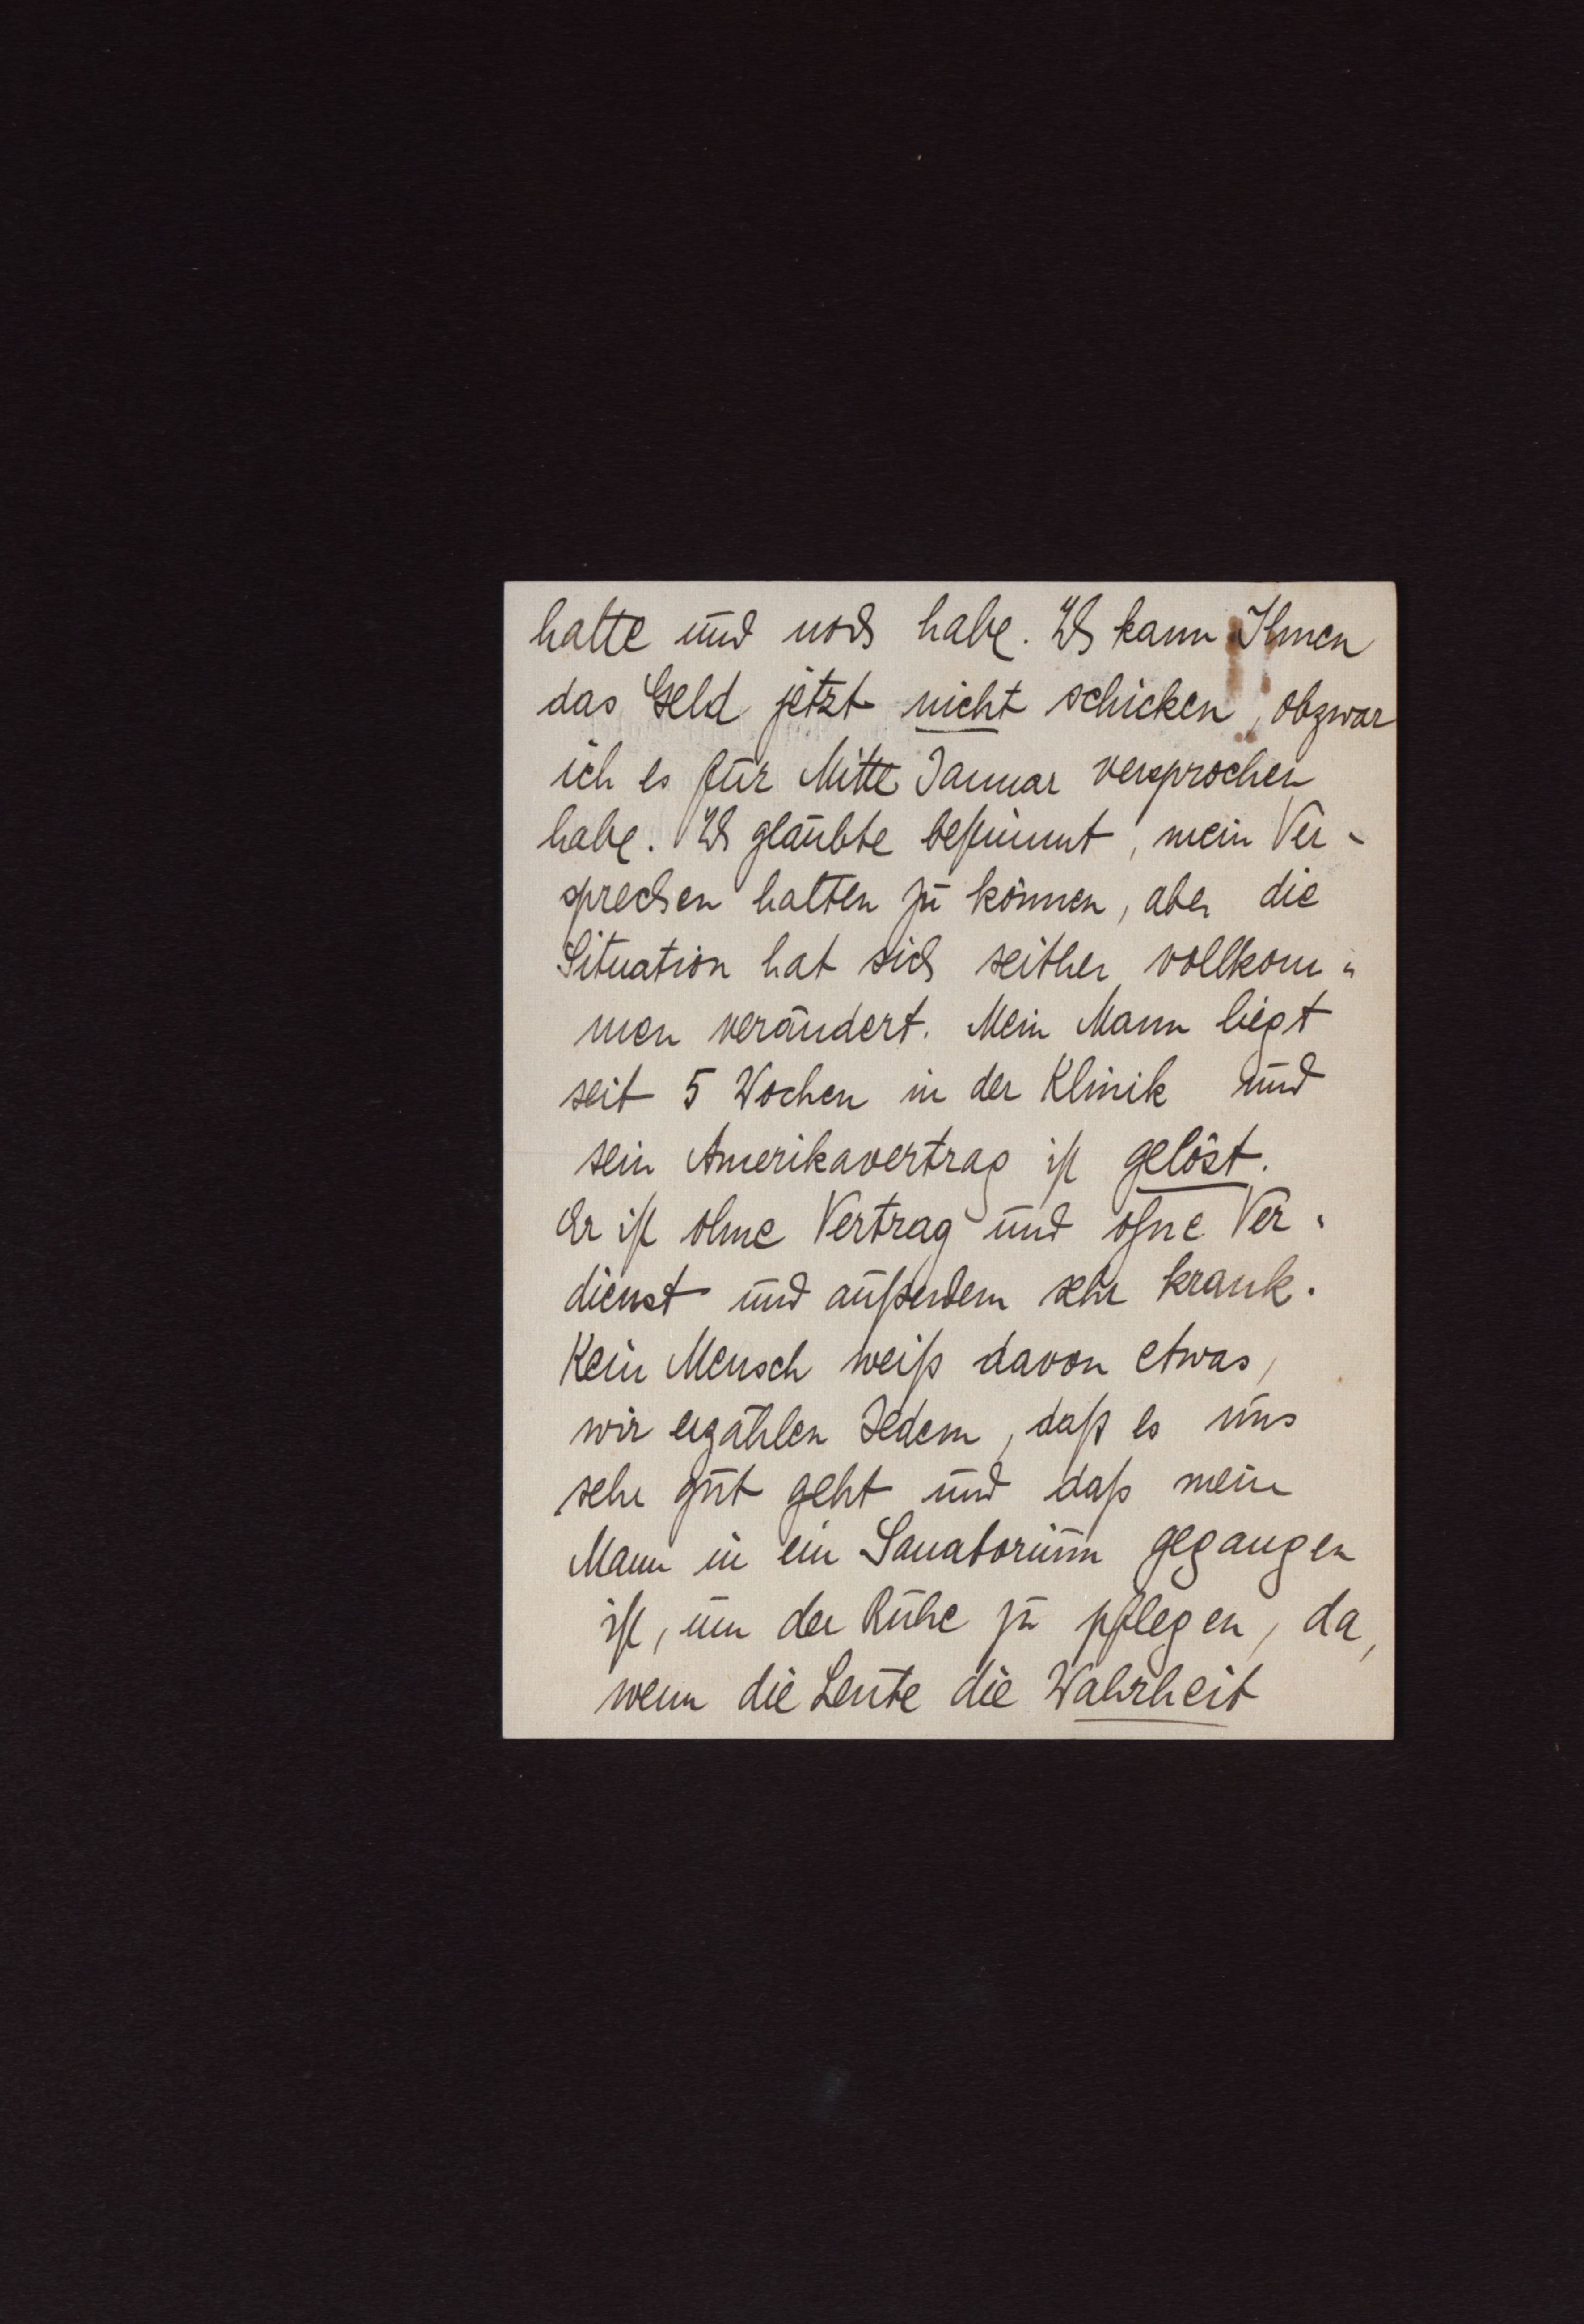 hatte und noch habe. Ich kann Ihnen
das Geld jetzt nicht schicken, obzwar
ich es für Mitte Januar versprochen
habe. Ich glaubte bestimmt, mein Ver-
sprechen halten zu können, aber die
Situation hat sich seither vollkom-
men verändert. Mein Mann liegt
seit 5 Wochen in der Klinik und
sein Amerikavertrag ist gelöst.
Er ist ohne Vertrag und ohne Ver-
dienst und außerdem sehr krank.
Kein Mensch weiß davon etwas,
wir erzählen Jedem, daß es uns
sehr gut geht und daß mein
Mann in ein Sanatorium gegangen
ist, um der Ruhe zu pflegen, da,
wenn die Leute die Wahrheit